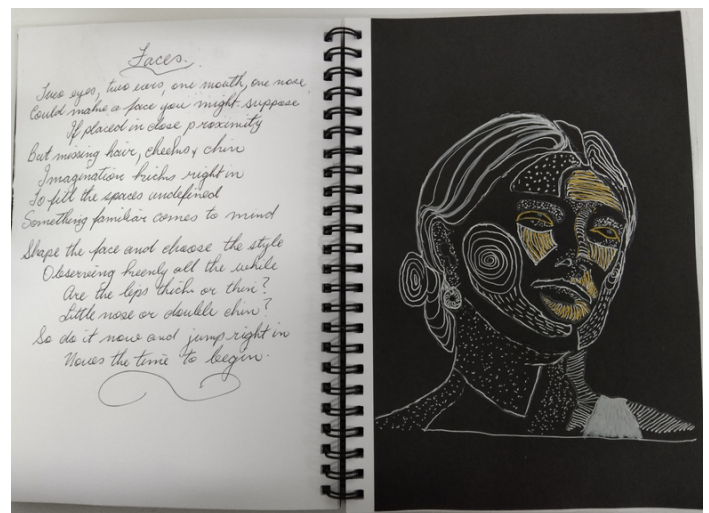 Faces.
Two eyes, two ears, one mouth, one nose
Could make a face you might suppose
If placed in close proximity
But missing hair, cheeks & chin
Imagination kicks right in
To fill the spaces undefined
Something familiar comes to mind
Shape the face and choose the style
Observing keenly all the while
Are the lips thick or thin?
Little nose or double chin?
So do it now and jump right in
Nows the time to begin.